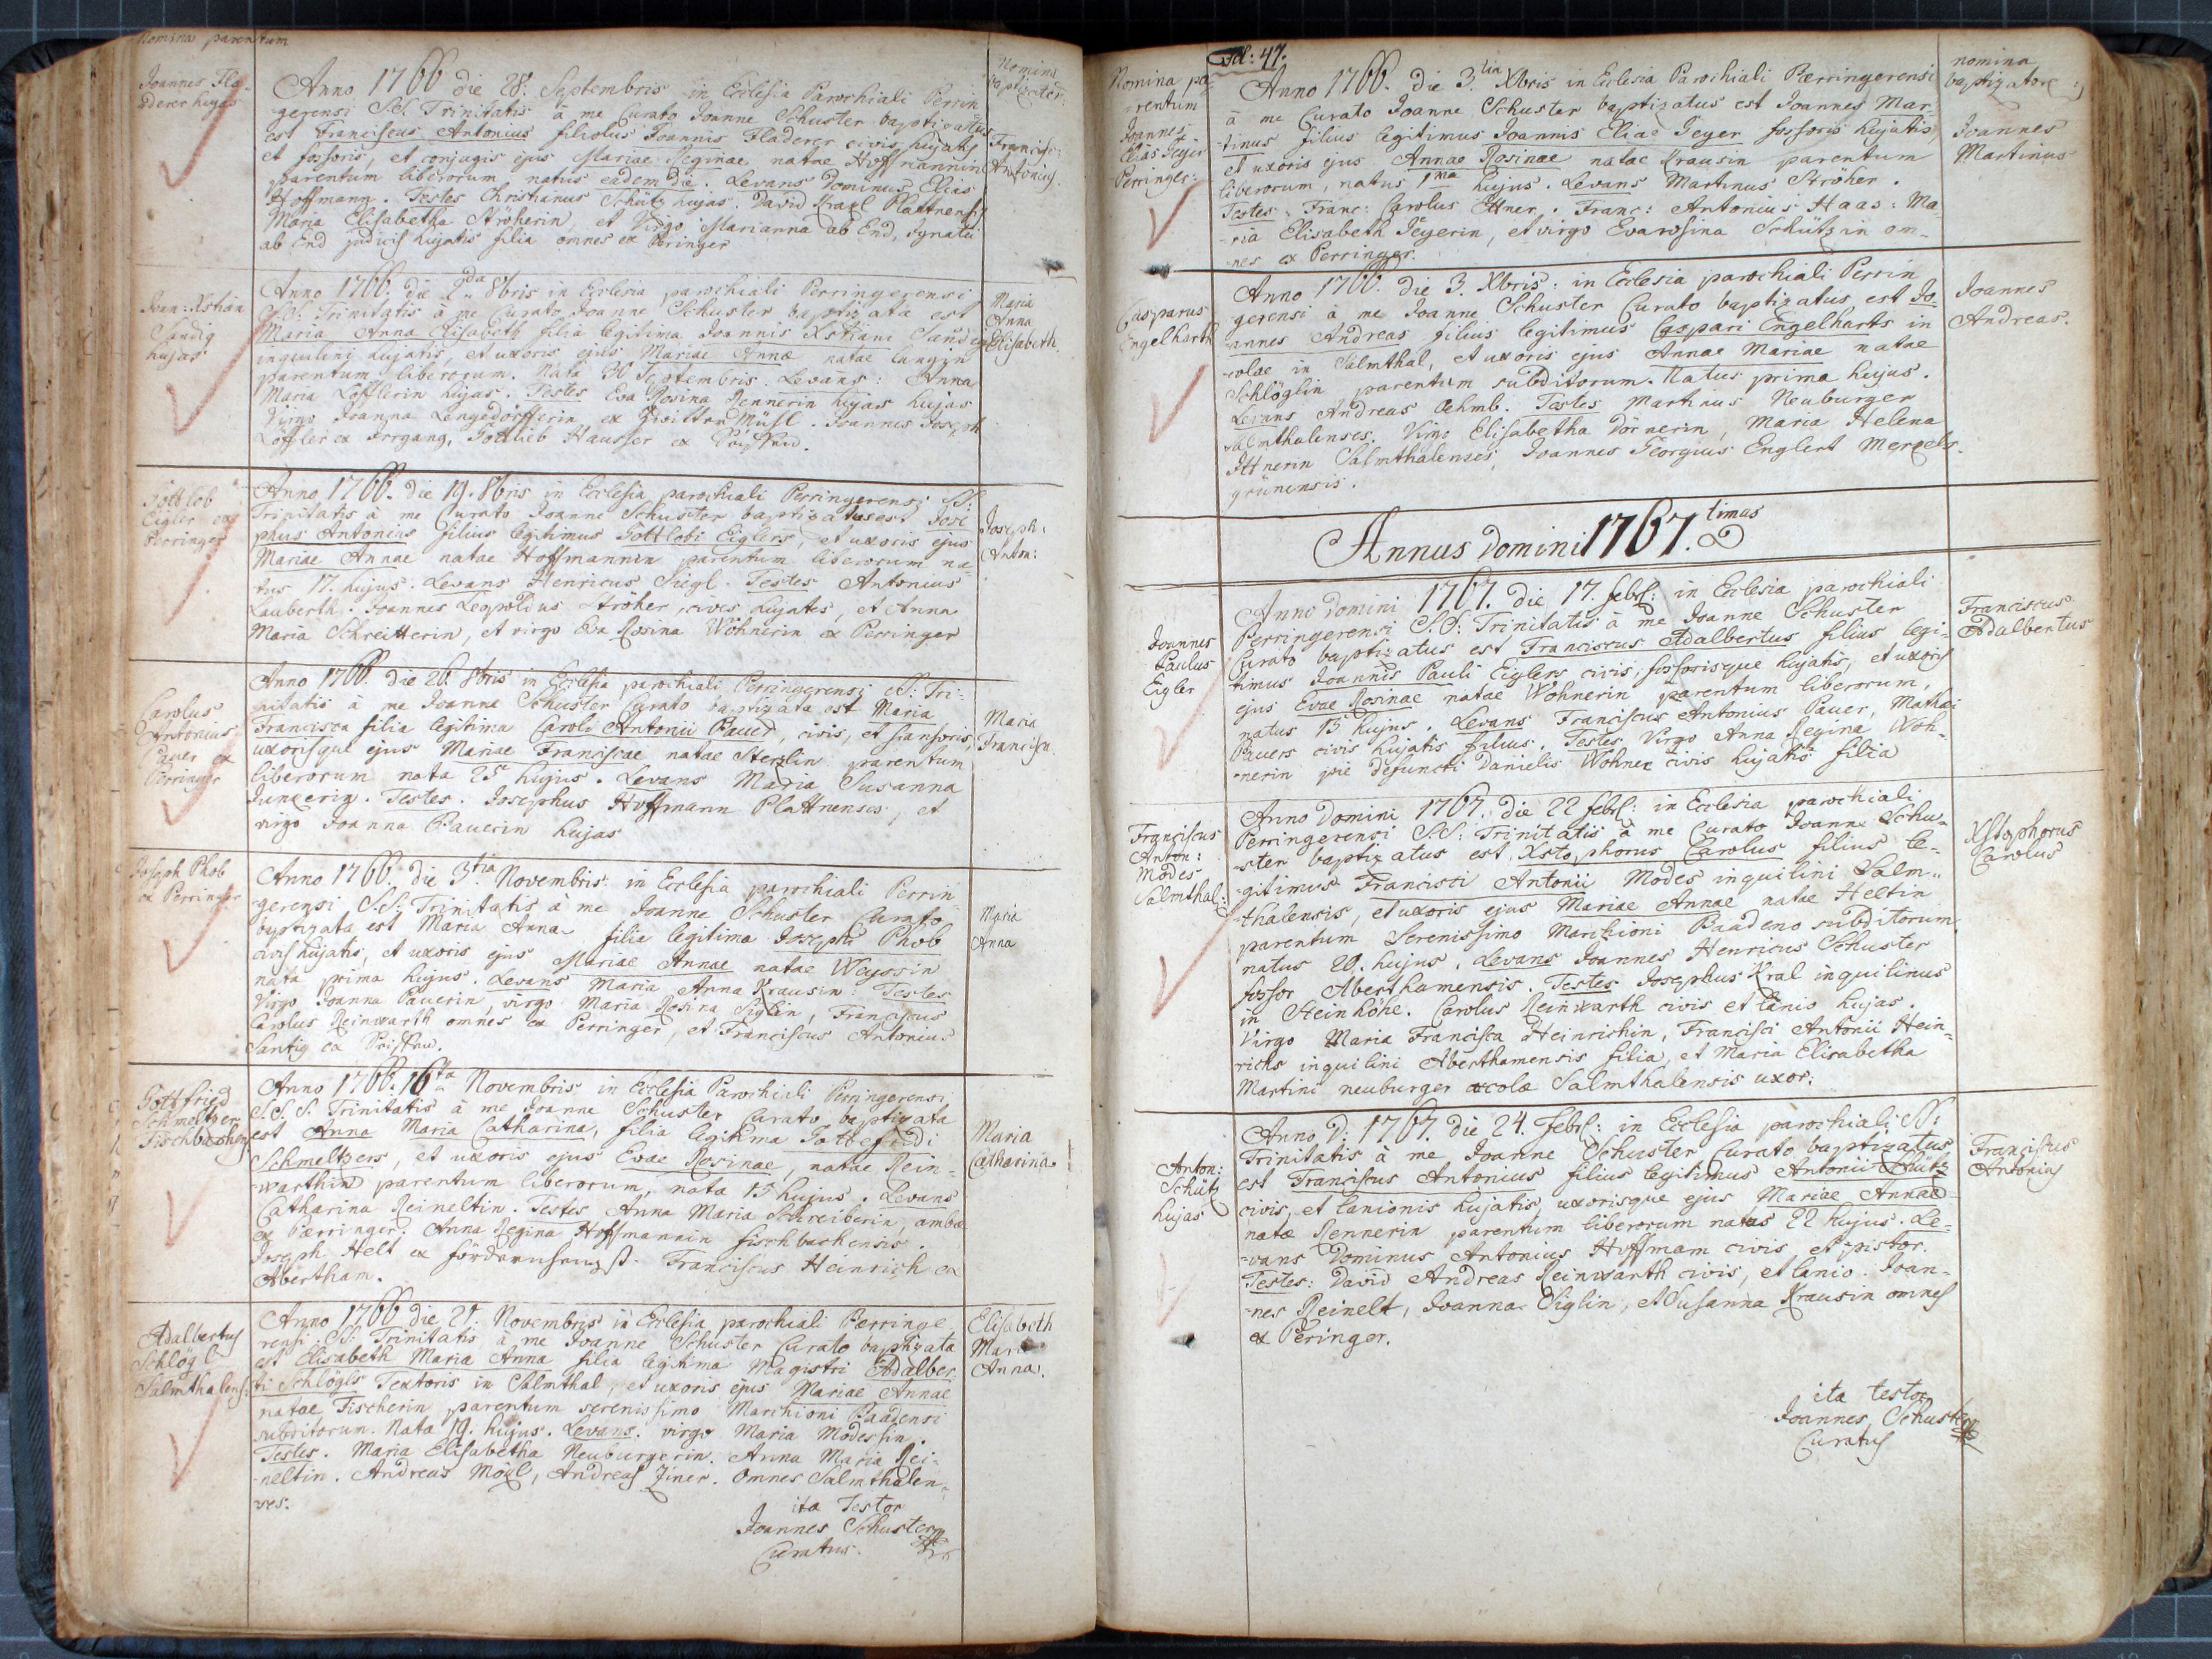 Nomina parentum
Nomina
baptizator:
Joannes Fla-
derer hujas
Anno 1766 die 28: Septembris in Ecclesia Parochiali Perrin
gerensi S.S. Trinitatis à me Curato Joanne Schuster baptizatus
est Franciscus Antonius filiolus Joannis Fladerer civis hujatis
et fossoris, et conjugis ejus Mariae Reginae natae Hoffmannin
parentum liberorum natus eadem die. Levans Dominus Elias
Hoffmann. Testes Christianus Schütz hujas. David Kraxl Plattnensis
Maria Elisabetha Ströherin, et Virgo Marianna ab End, Ignatii
ab End judicis hujatis filia omnes ex Peringer
Francisc:
Antonius.
Joan: Xstian
Sandig
hujas
Anno 1766. die 2da 8bris in Ecclesia parochiali Perringerensi
S.S: Trinitatis à me Curato Joanne Schuster baptizata est
Maria Anna Elisabeth filia legitima Joannis Xstiani Sandig
inquilini hujatis, et uxoris ejus Mariae Annae natae Langin
parentum liberorum. Nata 30 Septembris. Levans: Anna
Maria Löfflerin hujas. Testes Eva Rosina Rennerin hujas hujas
Virgo Joanna Lengsdörfferin ex Zwitter Mühl. Joannes Joseph
Löffler ex Irrgang, Gottlieb Hausser ex
Maria
Anna
Elisabeth.
Gottlob
Eigler ex
Perringer
Anno 1766. die 19. 8bris in Ecclesia parochiali Perringerensi S.S:
Trinitatis à me Curato Joanne Schuster baptizatus est Jose
phus Antonius filius legitimus Gottlobi Eiglers, et uxoris ejus
Mariae Annae natae Hoffmannin parentum liberorum na-
tus 17. hujus. Levans Henricus Siegl. Testes Antonius
Lauberth. Joannes Leopoldus Ströher, cives hujates, et Anna
Maria Schreitterin, et virgo Eva Rosina Wohnerin ex Perringer
Joseph:
Anton:
Carolus
Antonius
Pauer ex
Perringer
Anno 1766. die 26. 8bris in Ecclesia parochiali Perringerensi S.S: Tri-
nitatis à me Joanne Schuster Curato baptizata est Maria
Francisca filia legitima Caroli Antonii Pauer, civis, et
uxorisque ejus Mariae Franciscae natae Sterzlin parentum
liberorum nata 25ta hujus. Levans Maria Susanna
Junkerin. Testes. Josephus Hoffmann Plattnensis, et
virgo Joanna Pauerin hujas
Maria
Francisca.
Joseph Phob
ex Perringer
Anno 1766. die 3tia Novembris in Ecclesia parochiali Perrin
gerensi S.S. Trinitatis à me Joanne Schuster Curato
baptizata est Maria Anna filia legitima Josephi Phob
civis hujatis, et uxoris ejus Mariae Annae natae Weyssin
nata prima hujus. Levans Maria Anna Krausin. Testes
Virgo Joanna Pauerin, virgo Maria Rosina Siglin, Franciscus
Carolus Reinwarth omnes ex Perringer, et Franciscus Antonius
Santig ex
Maria
Anna
Gottfried
Schmeltzer
Fischbacher
Anno 1766. 16ta Novembris in Ecclesia Parochiali Perringerensi
S.S.S. Trinitatis à me Joanne Schuster Curato baptizata
est Anna Maria Catharina, filia legitima Gottefridi
Schmeltzers, et uxoris ejus Evae Rosinae, natae Rein-
warthin parentum liberorum, nata 15 hujus. Levans
Catharina Reineltin. Testes Anna Maria Schreiberin, ambae
ex Perringer. Anna Regina Hoffmannin fischbachensis.
Joseph Helt ex. Franciscus Heinrich ex
Abertham.
Maria
Catharina
Adalbertus
Schlögl
Salmthalens:
Anno 1766 die 21. Novembris in Ecclesia parochiali Perringe
rensi S.S: Trinitatis à me Joanne Schuster Curato baptizata
est Elisabeth Maria Anna filia legitima Magistri Adalber
ti Schlögls Textoris in Salmthal, et uxoris ejus Mariae Annae
natae Fischerin parentum serenissimo Marchioni Baadensi
subditorum. Nata 19. hujus. Levans. virgo Maria Modessin.
Testes. Maria Elisabetha Neuburgerin. Anna Maria Rei-
neltin. Andreas Mögl, Andreas Ziner. Omnes Salmthalen-
ses.
Elisabeth
Maria
Anna.
ita Testor
Joannes Schuster
Curatus.
Fol: 47.
Nomina pa-
rentum
nomina
baptizator:
Joannes
Elias Geyer
Perringer:
Anno 1766. die 3.tia Xbris in Ecclesia Parochiali Perringerensi
à me Curato Joanne Schuster baptizatus est Joannes Mar-
tinus filius legitimus Joannis Eliae Geyer fossoris hujatis,
et uxoris ejus Annae Rosinae natae Krausin parentum
liberorum, natus 1ma hujus. Levans Martinus Ströher.
Testes, Franc: Carolus Ettner. Franc: Antonius Haas: Ma-
ria Elisabeth Geyerin, et virgo Eva rosina Schützin om-
nes ex Perringer.
Joannes
Martinus
Casparus
Engelharth
Anno 1766. die 3. Xbris: in Ecclesia parochiali Perrin
gerensi à me Joanne Schuster Curato baptizatus, est Jo-
annes Andreas filius legitimus Caspari Engelharts in
colae in Salmthal, et uxoris ejus Annae Mariae natae
Schlöglin parentum subditorum. Natus prima hujus.
Levans Andreas Oehmb. Testes Martinus Neuburger
Salmthalenses. Virgo Elisabetha Dörnerin, Maria Helena
Ittnerin Salmthalenses, Joannes Georgius Englert Merkels-
grünensis.
Joannes
Andreas.
Annus Domini 1767.timus
Joannes
Paulus
Eigler
Anno Domini 1767. die 17. febr: in Ecclesia parochiali
Perringerensi S.S: Trinitatis à me Joanne Schuster
Curato baptizatus est Franciscus Adalbertus filius legi-
timus Joannis Pauli Eiglers civis, fossorisque hujatis, et uxoris
ejus Evae Rosinae natae Wohnerin parentum liberorum,
natus 15 hujus. Levans Franciscus Antonius Pauer, Mathaei
Pauers civis hujatis filius. Testes Virgo Anna Regina Woh-
nerin pie defuncti Danielis Wohner civis hujatis filia
Franciscus
Adalbertus
Franciscus
Anton:
Modes
Salmthal:
Anno Domini 1767. die 22 febr: in Ecclesia parochiali
Perringerensi S.S: Trinitatis à me Curato Joanne Schu-
ster baptizatus est Xstophorus Carolus filius le-
gitimus Francisci Antonii Modes inquilini Salm-
thalensis, et uxoris ejus Mariae Annae natae Heltin
parentum Serenissimo Marchioni Baadeno subditorum
natus 20. hujus. Levans Joannes Henricus Schuster
fossor Aberthamensis. Testes Josephus Kral inquilinus
in Steinhöhe. Carolus Reinwarth civis et lanio hujas.
Virgo Maria Francisca Heinrichin, Francisci Antonii Hein-
richs inquilini Aberthamensis filia, et Maria Elisabetha
Martini neuburger accolae Salmthalensis uxor.
Xstophorus
Carolus
Anton:
Schütz
hujas
Anno D: 1767. die 24. febr: in Ecclesia parochiali S.S:
Trinitatis à me Joanne Schuster Curato baptizatus
est Franciscus Antonius filius legitimus Antonii Schütz
civis, et lanionis hujatis, uxorisque ejus Mariae Annae
natae Rennerin parentum liberorum natus 22 hujus. Le-
vans Dominus Antonius Hoffmam civis, et pistor.
Testes: David Andreas Reinwarth civis, et lanio. Joan-
nes Reinelt, Joanna Siglin, et Susanna Krausin omnes
ex Peringer.
Franciscus
Antonius
ita testor
Joannes Schuster
Curatus